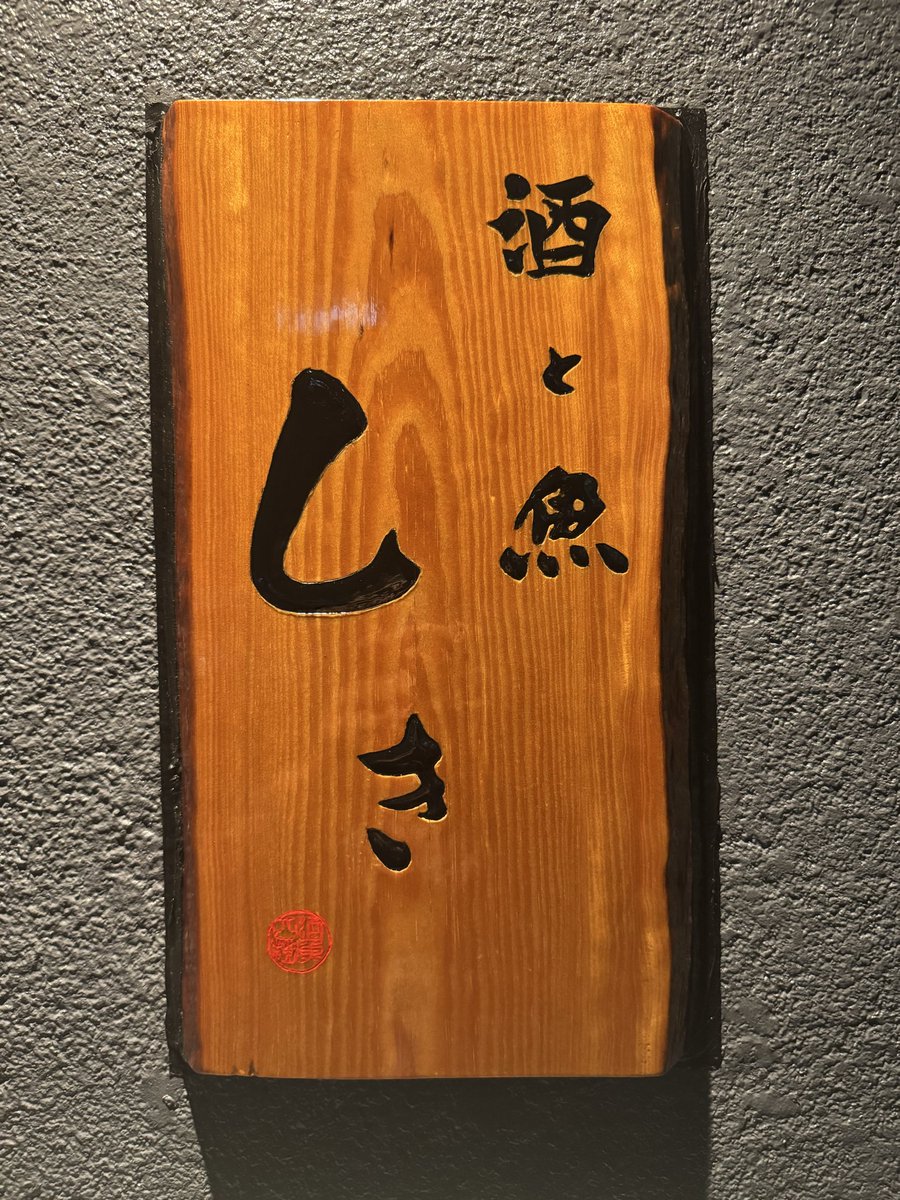 酒と魚
しき